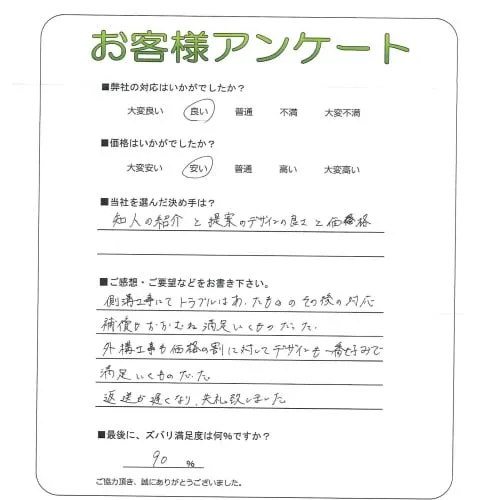 お客様アンケート
■弊社の対応はいかがでしたか？
大変良い 良い 普通 不満 大変不満
■価格はいかがでしたか？
大変安い 安い 普通 高い 大変高い
■当社を選んだ決め手は？
知人の紹介と提案のデザインの良さと価格
■ご感想・ご要望などをお書き下さい。
側溝工事にてトラブルはあったものの その後の対応
補償もおおむね満足いくものだった.
外構工事も価格の割に対してデザインも一番好みで
満足いくものだった
返送が遅くなり、失礼致しました
■最後に、ズバリ満足度は何％ですか？
90 ％
ご協力頂き、誠にありがとうございました。